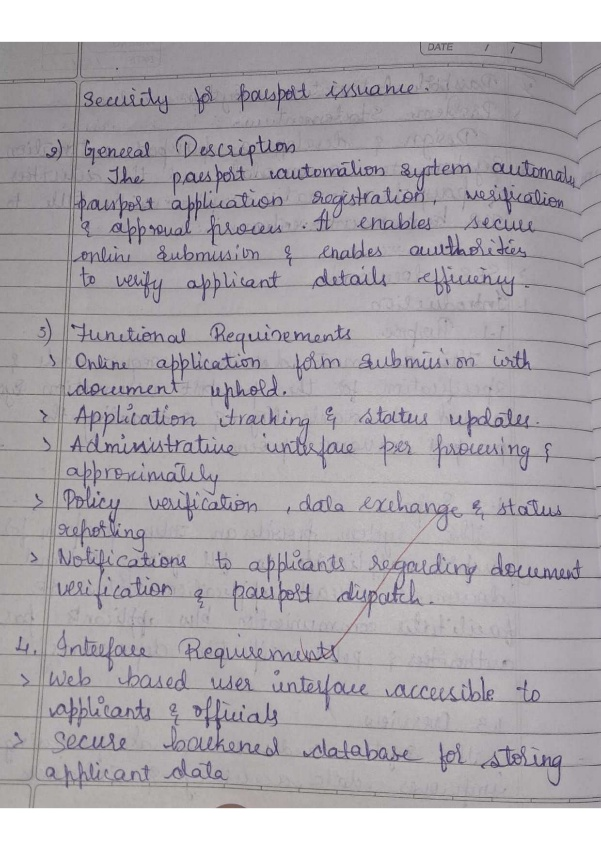 DATE / /
Security for passport issuance.
2) General Description
The passport automation system automate
passport application registration, verification
& approval process. It enables secure
online submission & enables authorities
to verify applicant details efficiency.
3) Functional Requirements
> Online application form submission with
document uphold.
> Application tracking & status updates.
> Administrative interface per processing &
approximately
> Policy verification, data exchange & status
reporting
> Notifications to applicants regarding document
verification & passport dispatch.
4. Interface Requirements
> Web based user interface accessible to
applicants & officials
> Secure backened database for storing
applicant data